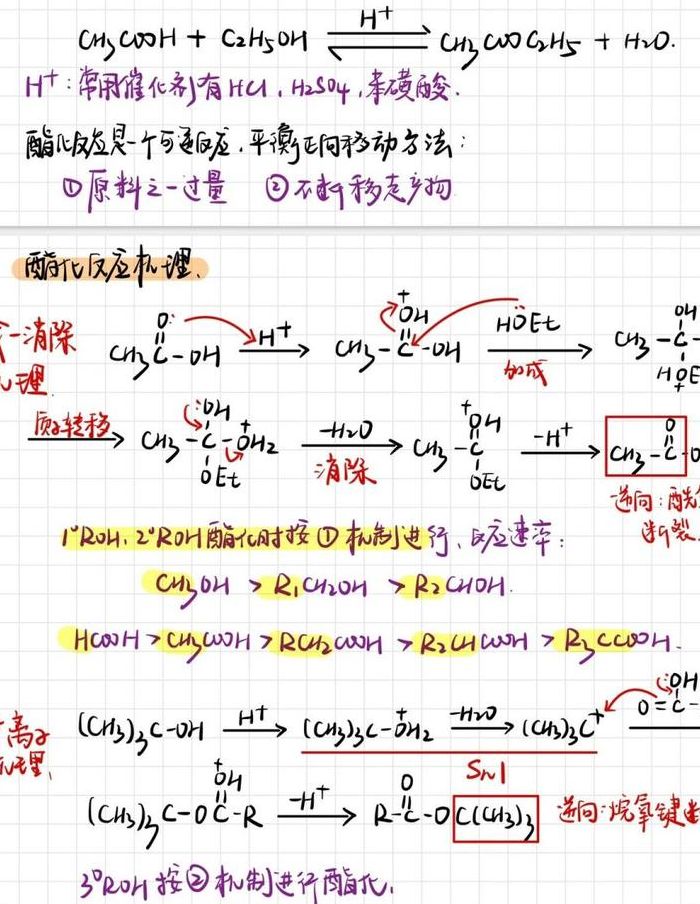 CH3COOH + C2H5OH ⇌ H+ CH3COOC2H5 + H2O.
H+ : 常用催化剂有 HCl, H2SO4, 苯磺酸.
酯化反应是一个可逆反应, 平衡正向移动方法:
① 原料之一过量 ② 不断移走产物
酯化反应机理.
消除
CH3 C(=O:) - OH → H+ CH3 - C(=+OH) - OH HÖEt → 加成 CH3 - C - OH HOE
质子转移 → CH3 - C(:OH)(OEt) - +OH2 -H2O → 消除 CH3 - C(=+OH) OEt -H+ → CH3 - C(=O) - O
逆向: 酰
断裂
1°ROH, 2°ROH 酯化时按 ① 机制进行, 反应速率:
CH3OH > R1CH2OH > R2CHOH.
HCOOH > CH3COOH > RCH2COOH > R2CHCOOH > R3CCOOH.
离子 (CH3)3C-OH H+ → (CH3)3C-+OH2 -H2O → (CH3)3C+ O=C- :OH →
机理. SN1
(CH3)3C-O C(=+OH)-R -H+ → R-C(=O)-O C(CH3)3 逆向: 烷氧键
3°ROH 按 ② 机制进行酯化.